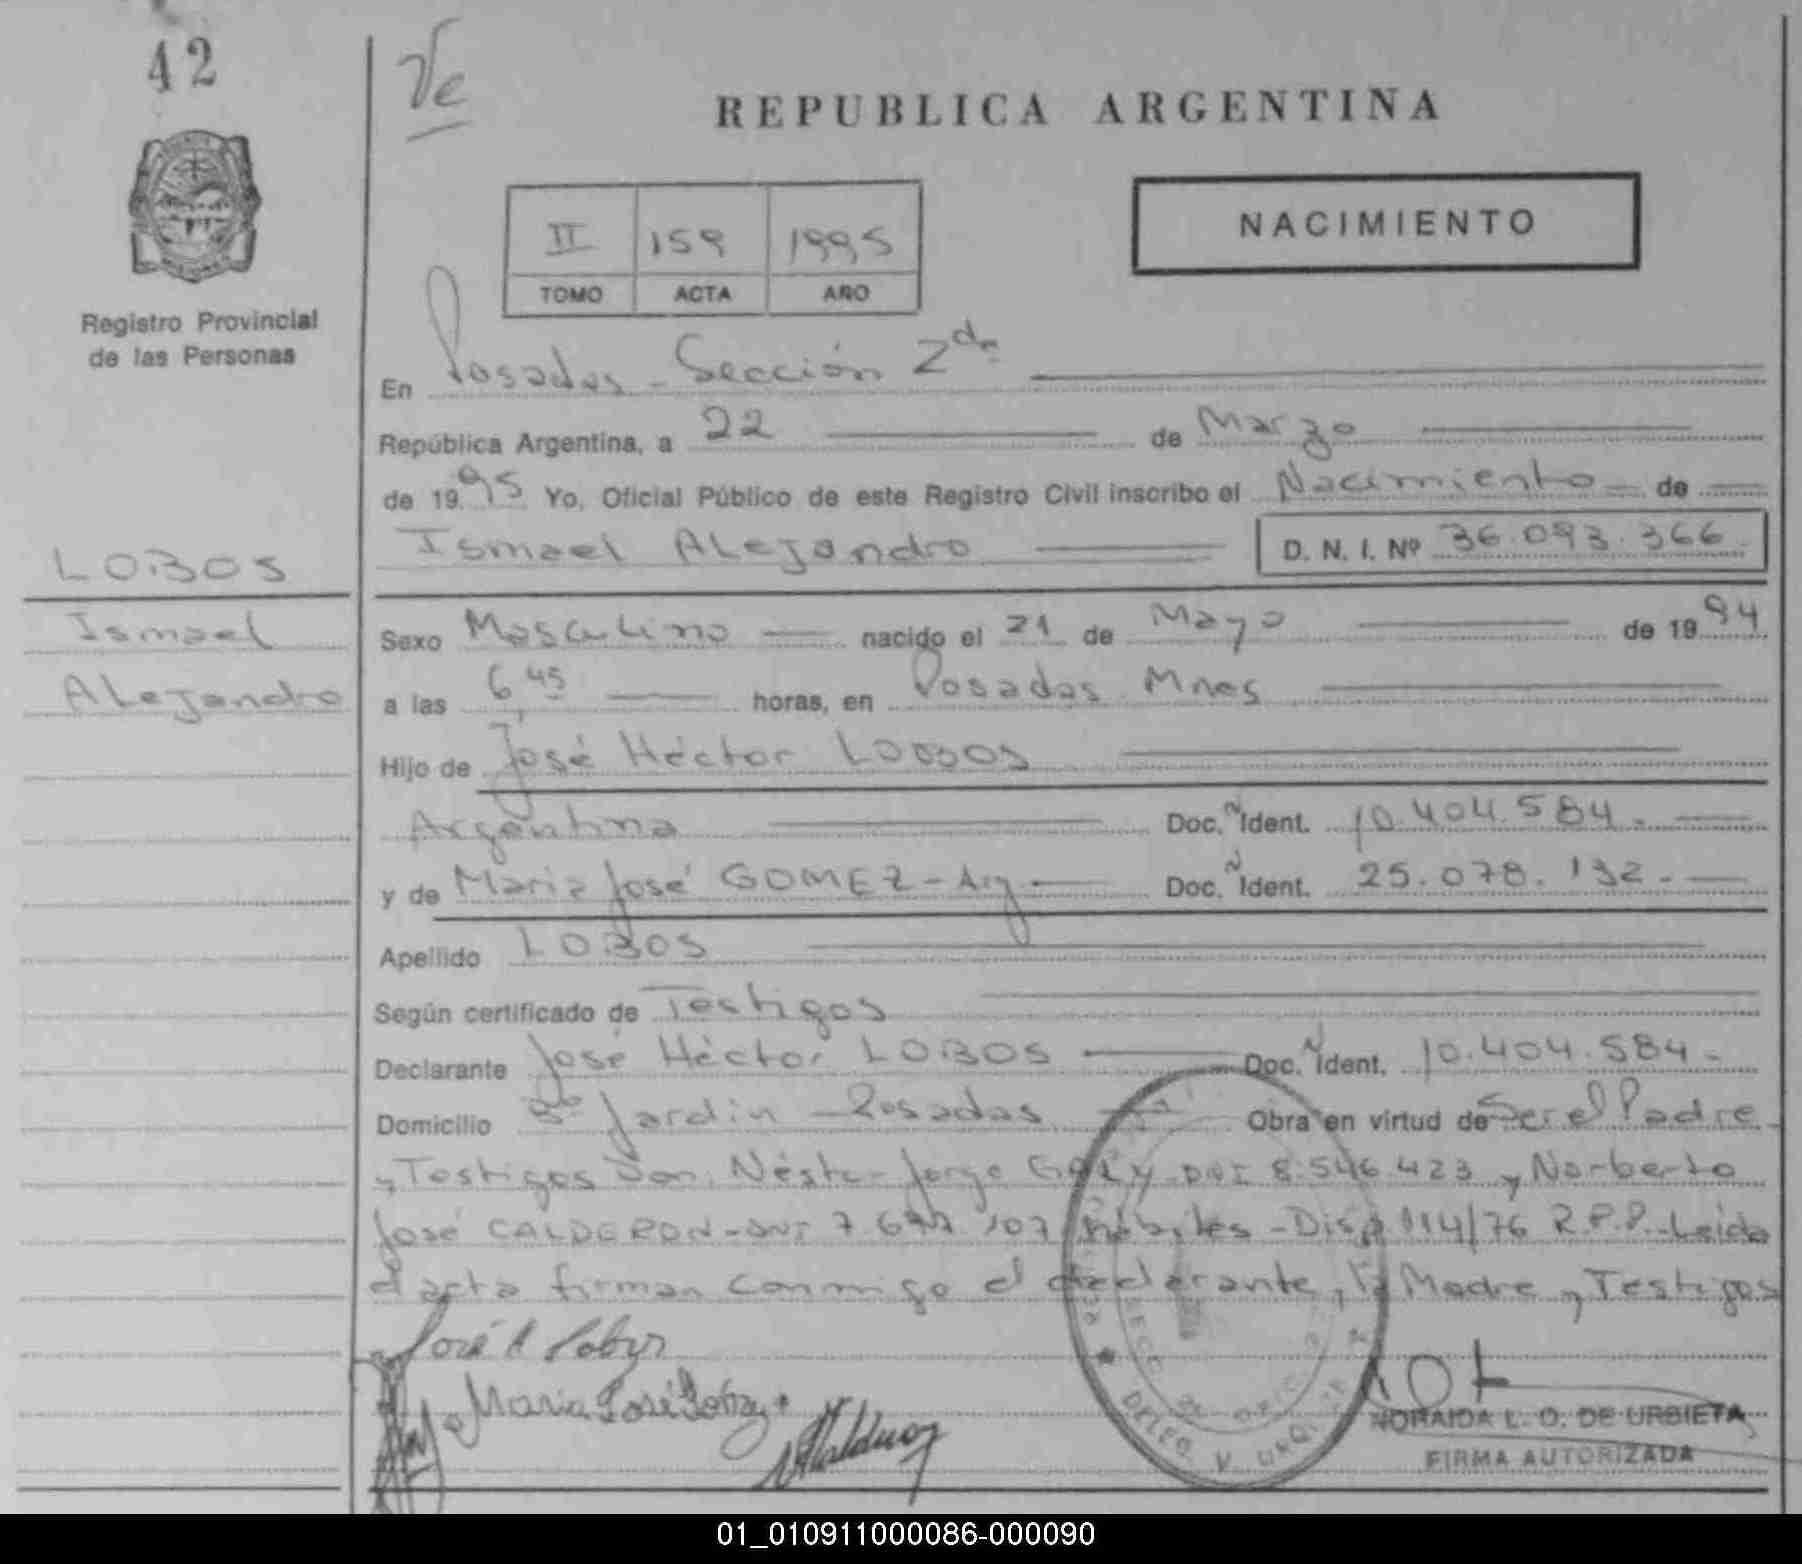 42
Ve
REPUBLICA ARGENTINA
NACIMIENTO
II 159 1995
TOMO ACTA AÑO
Registro Provincial
de las Personas
En Posadas - Sección 2da
República Argentina, a 22 de Marzo
de 1995 Yo, Oficial Público de este Registro Civil inscribo el Nacimiento de
Ismael Alejandro D. N. I. Nº 36.093.366
LOBOS
Ismael
Alejandro
Sexo Masculino nacido el 21 de Mayo de 1994
a las 6,45 horas, en Posadas Mnes
Hijo de José Héctor LOBOS
Argentina Doc. Ident. 10.404.584.
y de Maria José GOMEZ - Arg Doc. Ident. 25.078.132.
Apellido LOBOS
Según certificado de Testigos
Declarante José Héctor LOBOS Doc. Ident. 10.404.584.
Domicilio Bº Jardin - Posadas Obra en virtud de Ser el Padre
y Testigos Don Néstor Jorge DNI 8.546.423 y Norberto
José CALDERON - DNI 107 hábiles - Disp 114/76 R.P.P. - Leida
el acta firman conmigo el declarante, la Madre y Testigos
NORAIDA L. O. DE URBIETA
FIRMA AUTORIZADA
01_010911000086-000090